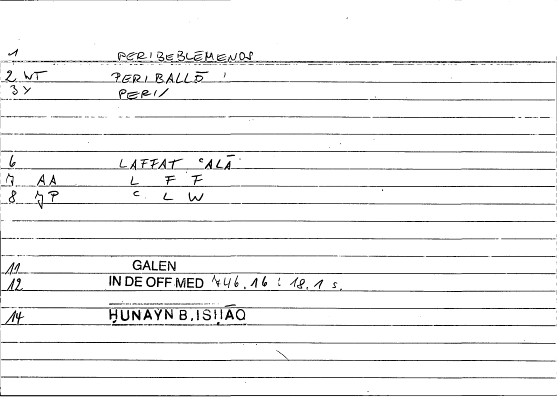 1 PERIBEBLĒMENOS
2 WT PERIBALLŌ
3 Y PERI/
6 LAFFAT ʿALĀ
7 AA L F F
8 JP ʿ L W
11 GALEN
12 IN DE OFF MED 746,16 : 18,1 s.
14 ḤUNAYN B. ISḤĀQ